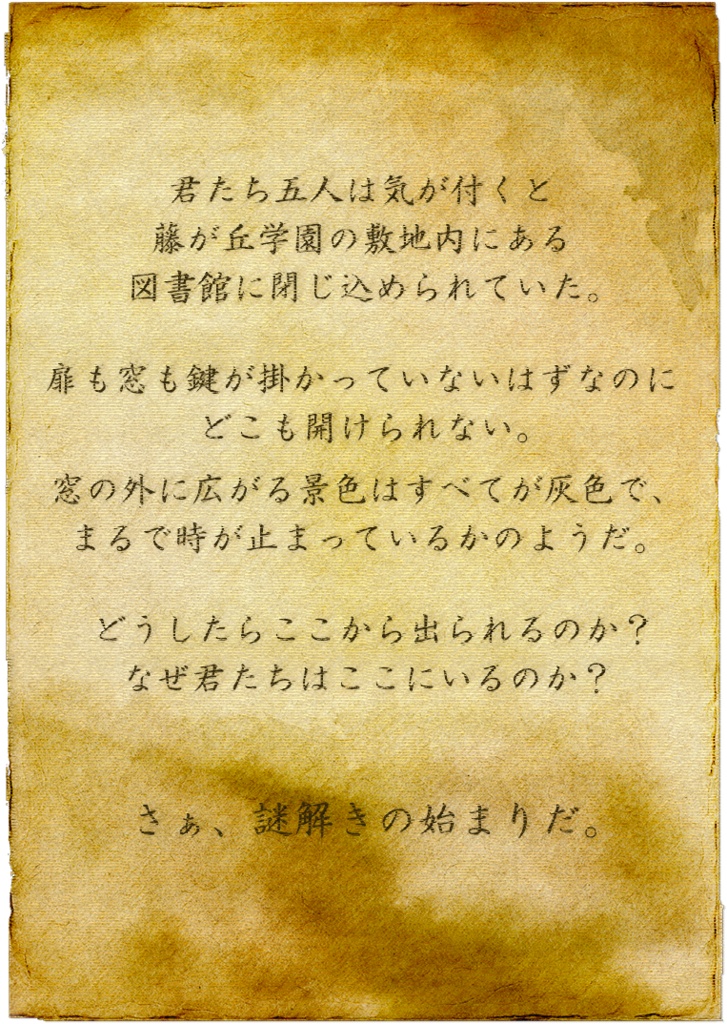 君たち五人は気が付くと
藤が丘学園の敷地内にある
図書館に閉じ込められていた。
扉も窓も鍵が掛かっていないはずなのに
どこも開けられない。
窓の外に広がる景色はすべてが灰色で、
まるで時が止まっているかのようだ。
どうしたらここから出られるのか？
なぜ君たちはここにいるのか？
さぁ、謎解きの始まりだ。